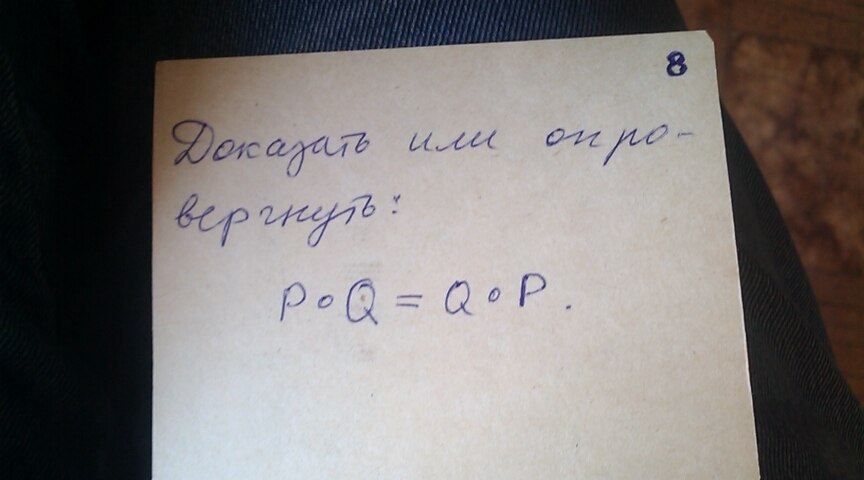 8
Доказать или опро-
вергнуть:
P∘Q = Q∘P.